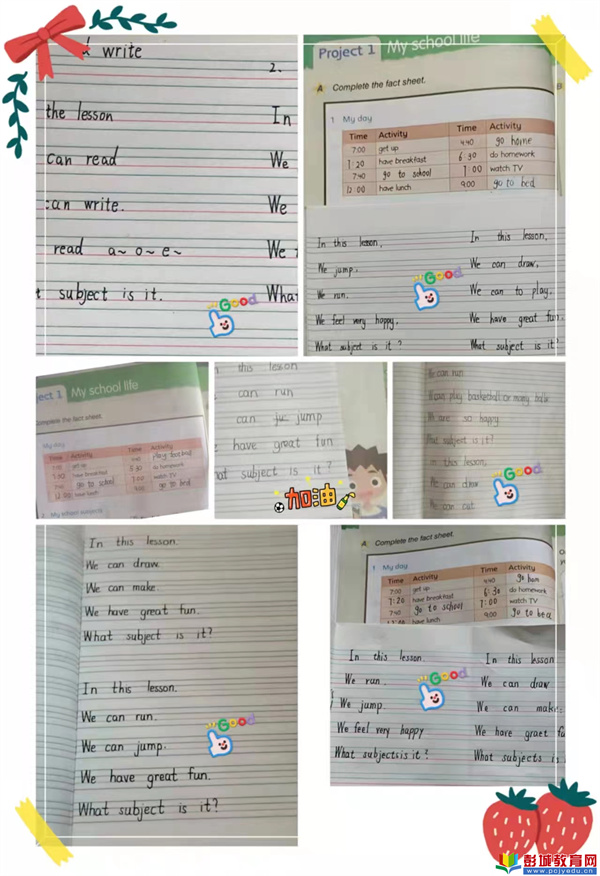 write
2.
the lesson
In
can read
We
can write.
We
read a~ o~ e~
We
subject is it.
Good
What
Project 1 My school life
A Complete the fact sheet.
1 My day
Time Activity Time Activity
7:00 get up 4:40 go home
7:20 have breakfast 6:30 do homework
7:40 go to school 7:00 watch TV
12:00 have lunch 9:00 go to bed
In this lesson,
We jump.
We run.
We feel very happy.
What subject is it?
In this lesson,
We can draw,
We can to play,
We have great fun.
What subject is it?
Good
ject 1 My school life
Complete the fact sheet.
My day
Time Activity Time Activity
get up play football
have breakfast 5:30 do homework
go to school watch TV
12:00 have lunch 9:00 go to bed
2 My school subjects
this lesson
can run
can jump
have great fun
hat subject is it?
加油
We can run
We are so happy
What subject is it?
In this lesson,
We can draw
We can cut
Good
In this lesson.
We can draw.
We can make.
We have great fun.
What subject is it?
In this lesson.
We can run.
We can jump.
We have great fun.
What subject is it?
Good
A Complete the fact sheet.
1 My day
Time Activity
7:00 get up 4:40 go hom
7:20 have breakfast 6:30 do homework
7:40 go to school 7:00 watch TV
have lunch 9:00 go to bed
In this lesson.
We run.
We jump.
We feel very happy
What subjects is it?
In this lesson
We can draw
We can make.
We have graet fu
What subjects is
Good
彭城教育网
www.pcjyedu.cn